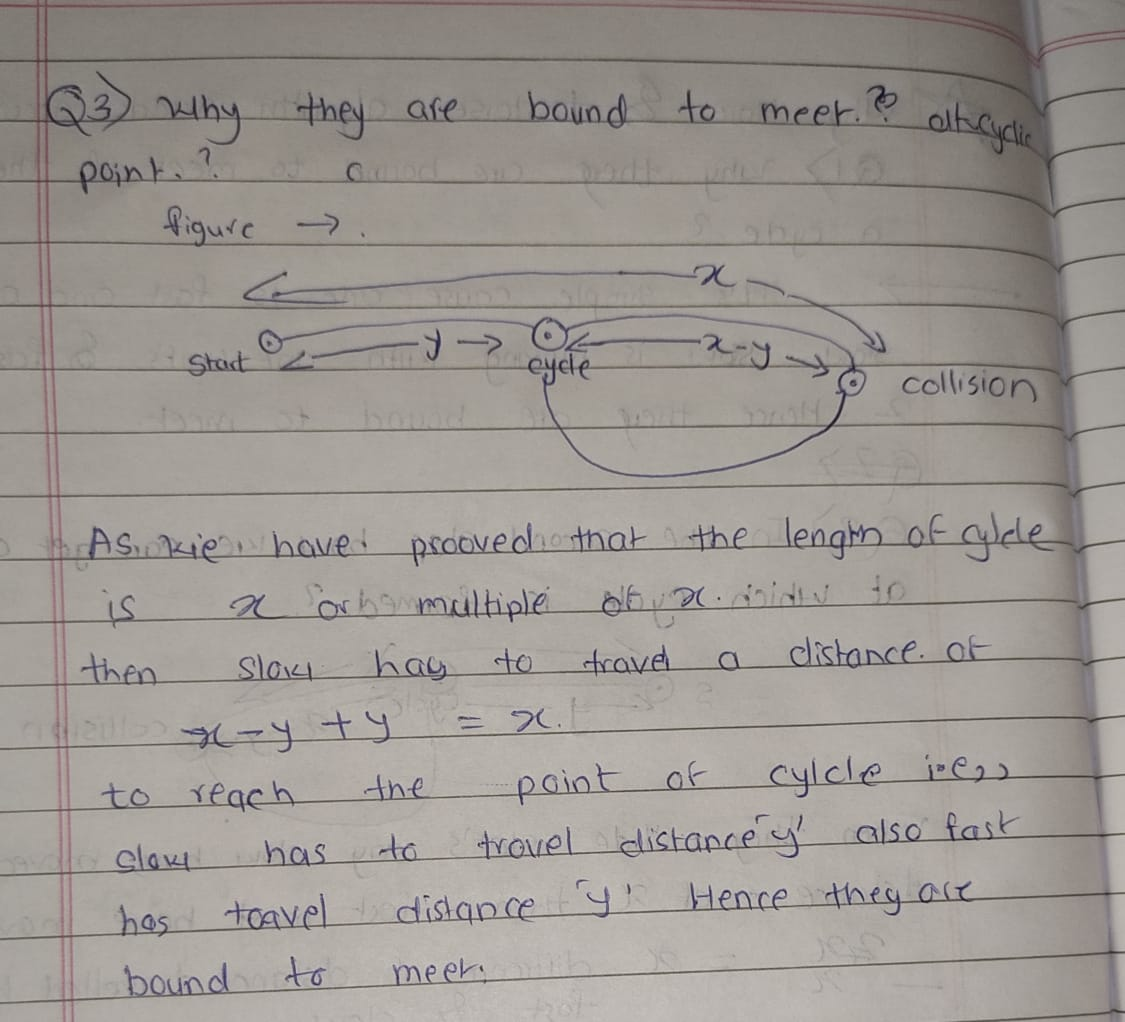 Q3) Why they are bound to meet.? at cyclic
point.?
figure → .
x
Start y cycle x-y collision
As, we have prooved that the length of cylcle
is x or multiple of x.
then slow has to travel a distance. of
x-y+y = x.
to reach the point of cylcle i.e,,
slow has to travel distance 'y' also fast
has travel distance 'y' Hence they are
bound to meet.